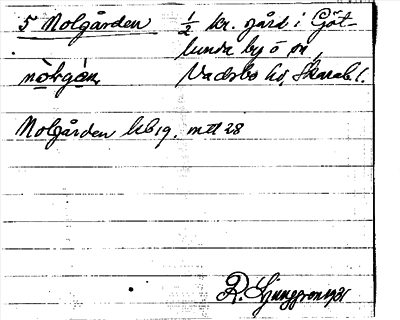 5 Nolgården
1/2 kr. gård i Göt-
lunda by o sn,
Vadsbo hd, Skarab l.
nòlgḁn
Nolgården hb 19. mtl 28
R. Ljunggren 1931